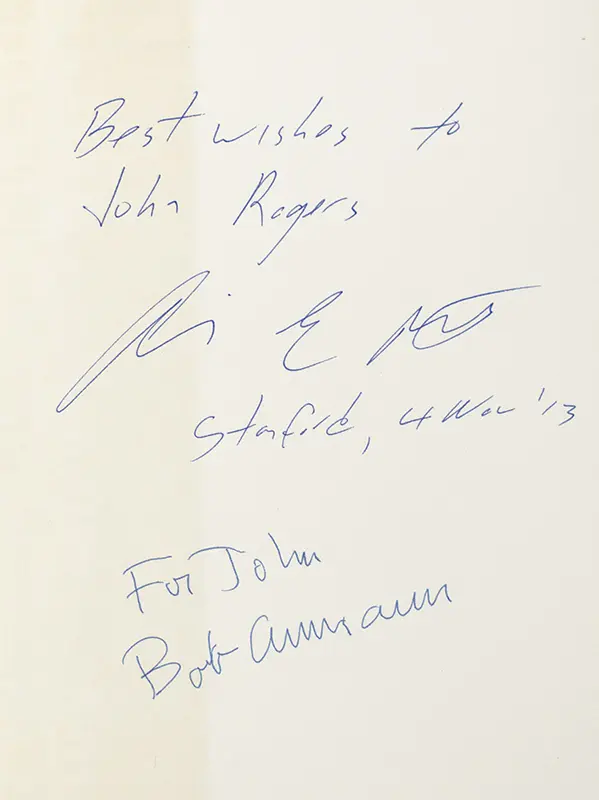 Best wishes to
John Rogers
E
Stanford, 4 Nov '13
For John
Bob Aumann